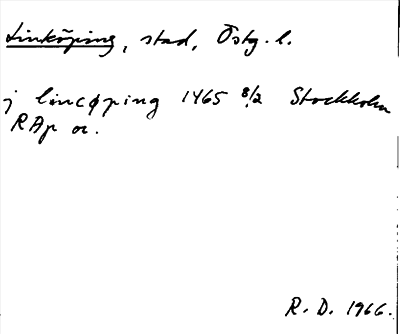 Linköping, stad, Östg. l.
j lincøping 1465 8/2 Stockholm
RAp or.
R. D. 1966.